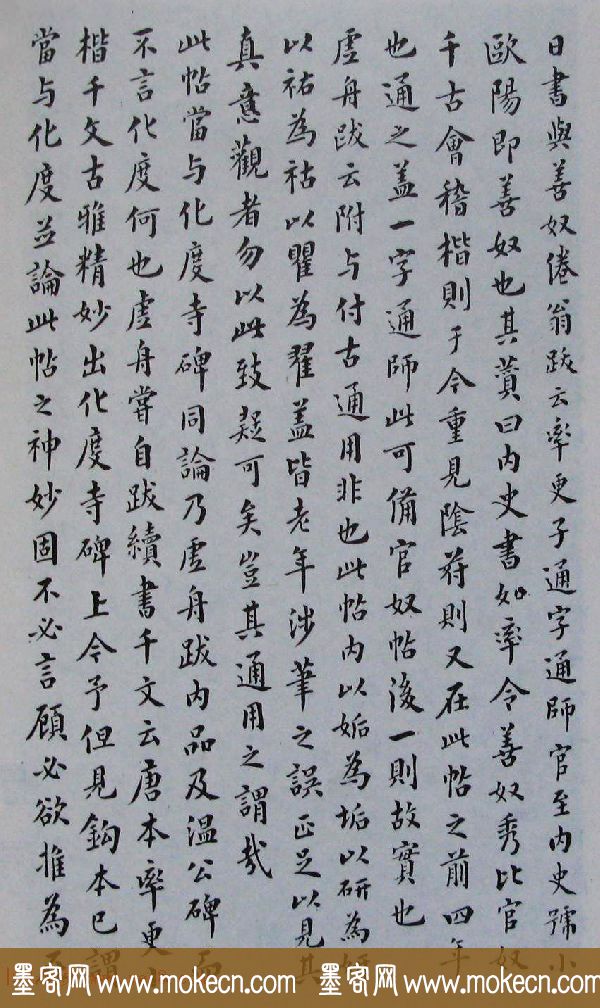 日書與善奴倦翁跋云率更子通字通師官至內史號小
歐陽即善奴也其蕒曰內史書如率令善奴秀比官奴
千古會稽楷則于今重見陰符則又在此帖之前四年
也通之蓋一字通師此可備官奴帖後一則故實也
虛舟跋云附与付古通用非也此帖內以姤為垢以研為
以祐為祜以瞿為翟蓋皆老年涉筆之誤正足以見其
真意觀者勿以此致疑可矣豈其通用之謂哉
此帖當与化度寺碑同論乃虛舟跋內品及溫公碑而
不言化度何也虛舟嘗自跋續書千文云唐本率更小
楷千文古雅精妙出化度寺碑上今予但見鈎本已謂
當与化度並論此帖之神妙固不必言顧必欲推為
墨客网 www.mokecn.com 墨客网 www.mokecn.com